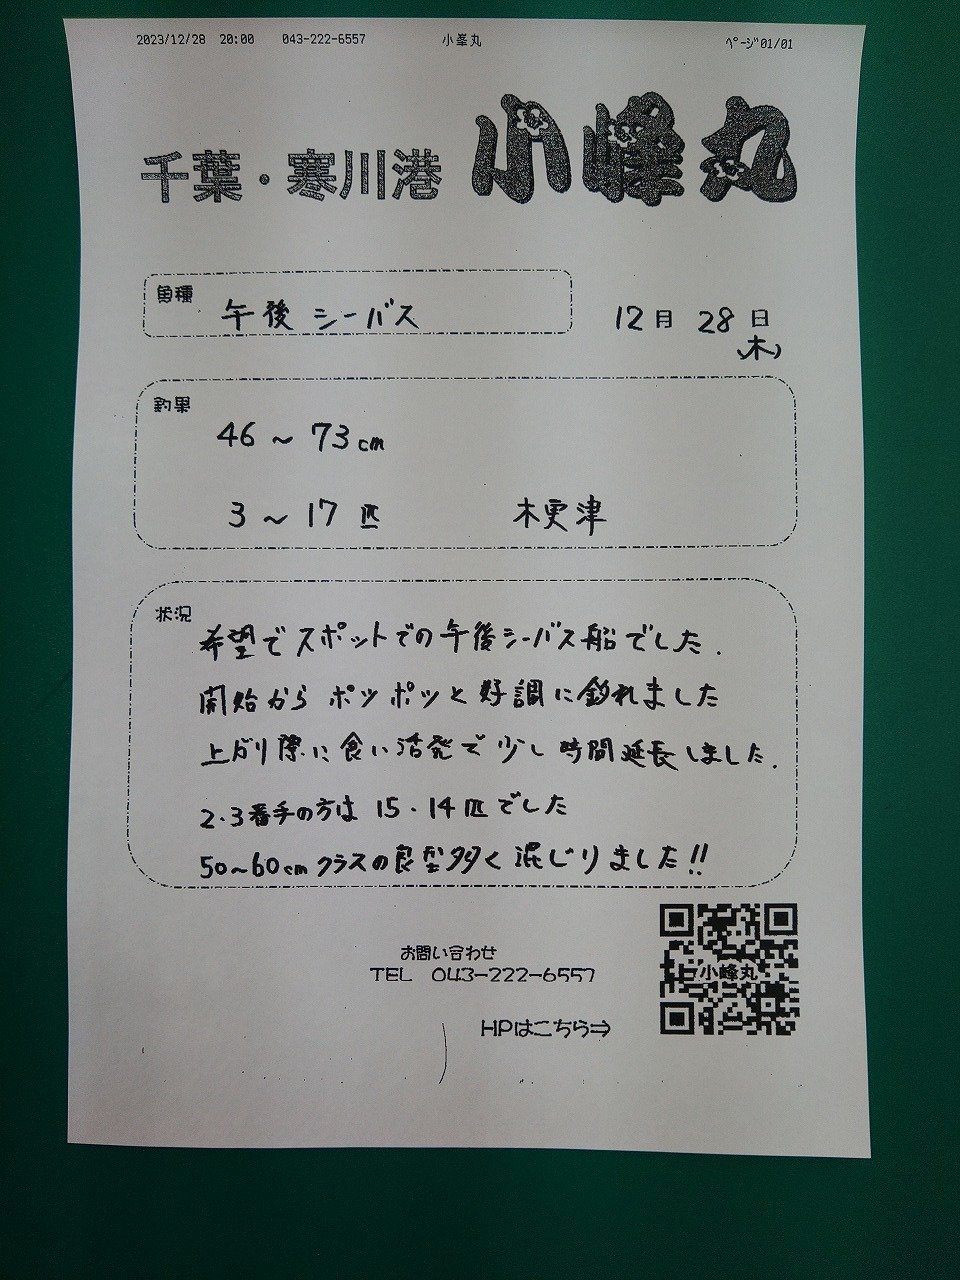 2023/12/28 20:00 043-222-6557 小峯丸 ﾍﾟｰｼﾞ01/01
千葉・寒川港 小峰丸
魚種
午後 シーバス
12月 28日
(木)
釣果
46～73cm
3～17匹 木更津
状況
希望でスポットでの午後シーバス船でした.
開始から ポツポツと好調に釣れました
上がり際に食い活発で少し時間延長しました.
2.3番手の方は 15.14匹でした
50～60cmクラスの良型多く混じりました!!
お問い合わせ
TEL 043-222-6557
小峰丸
HPはこちら⇒